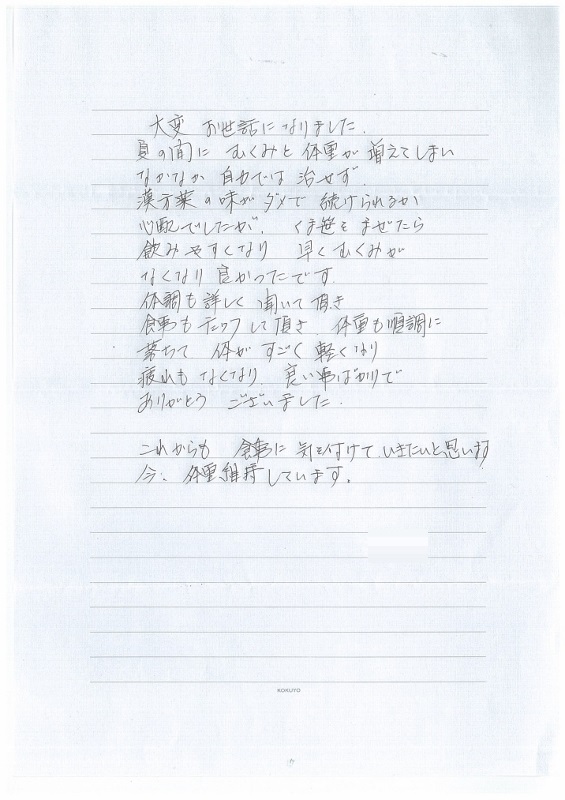 大変 お世話になりました.
夏の間に むくみと 体重が 増えてしまい
なかなか 自力では 治せず.
漢方薬の味が ダメで 続けられるか
心配でしたが、 くま笹を まぜたら
飲みやすくなり 早く むくみが
なくなり 良かったです
体調も 詳しく 聞いて 頂き
食事も チェックして 頂き 体重も 順調に
落ちて 体が すごく 軽くなり
疲れも なくなり. 良い事ばかりで
ありがとう ございました.
これからも 食事に 気を付けて いきたいと思います
今、 体重維持しています.
KOKUYO